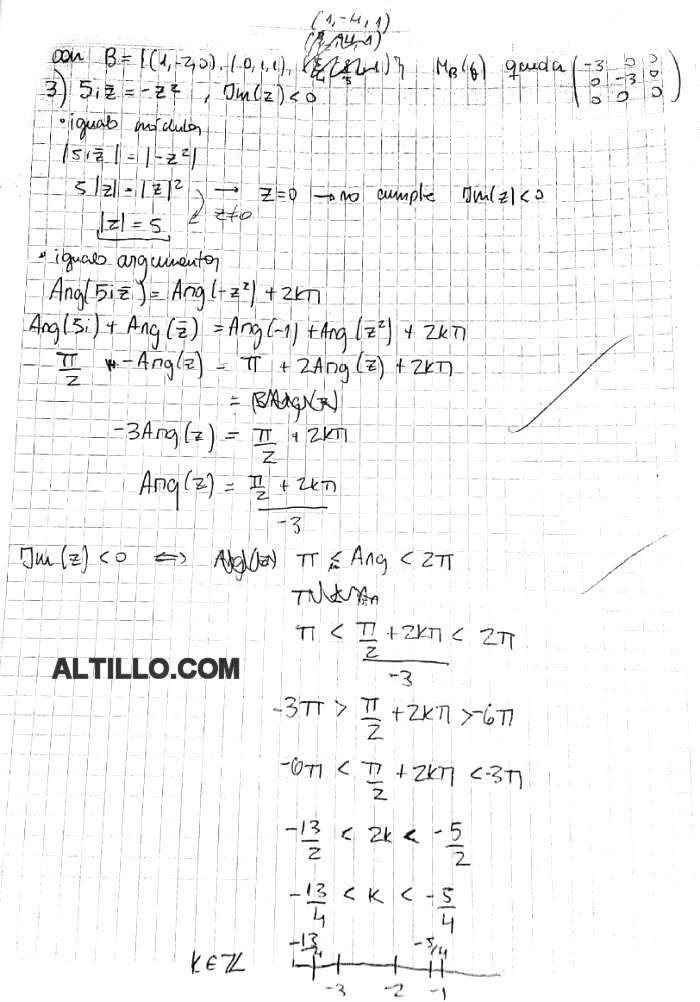 (1,-4,1)
con B={(1,-2,0),(0,1,1), M_B(f) queda (-3 0 0
0 -3 0
0 0 0)
3) 5iz̄ = -z² , Im(z)<0
• igualo módulos
|5iz̄| = |-z²|
5|z| = |z|² → z=0 → no cumple Im(z)<0
|z| = 5 z≠0
• igualo argumentos
Arg(5iz̄) = Arg(-z²) + 2kπ
Arg(5i) + Arg(z̄) = Arg(-1) + Arg(z²) + 2kπ
π/2 - Arg(z) = π + 2Arg(z) + 2kπ
-3Arg(z) = π/2 + 2kπ
Arg(z) = (π/2 + 2kπ)/-3
Im(z)<0 ⇔ π ≤ Arg < 2π
π < (π/2 + 2kπ)/-3 < 2π
ALTILLO.COM
-3π > π/2 + 2kπ > -6π
-6π < π/2 + 2kπ < -3π
-13/2 < 2k < -5/2
-13/4 < k < -5/4
-13/4 -5/4
k∈ℤ
-3 -2 -1